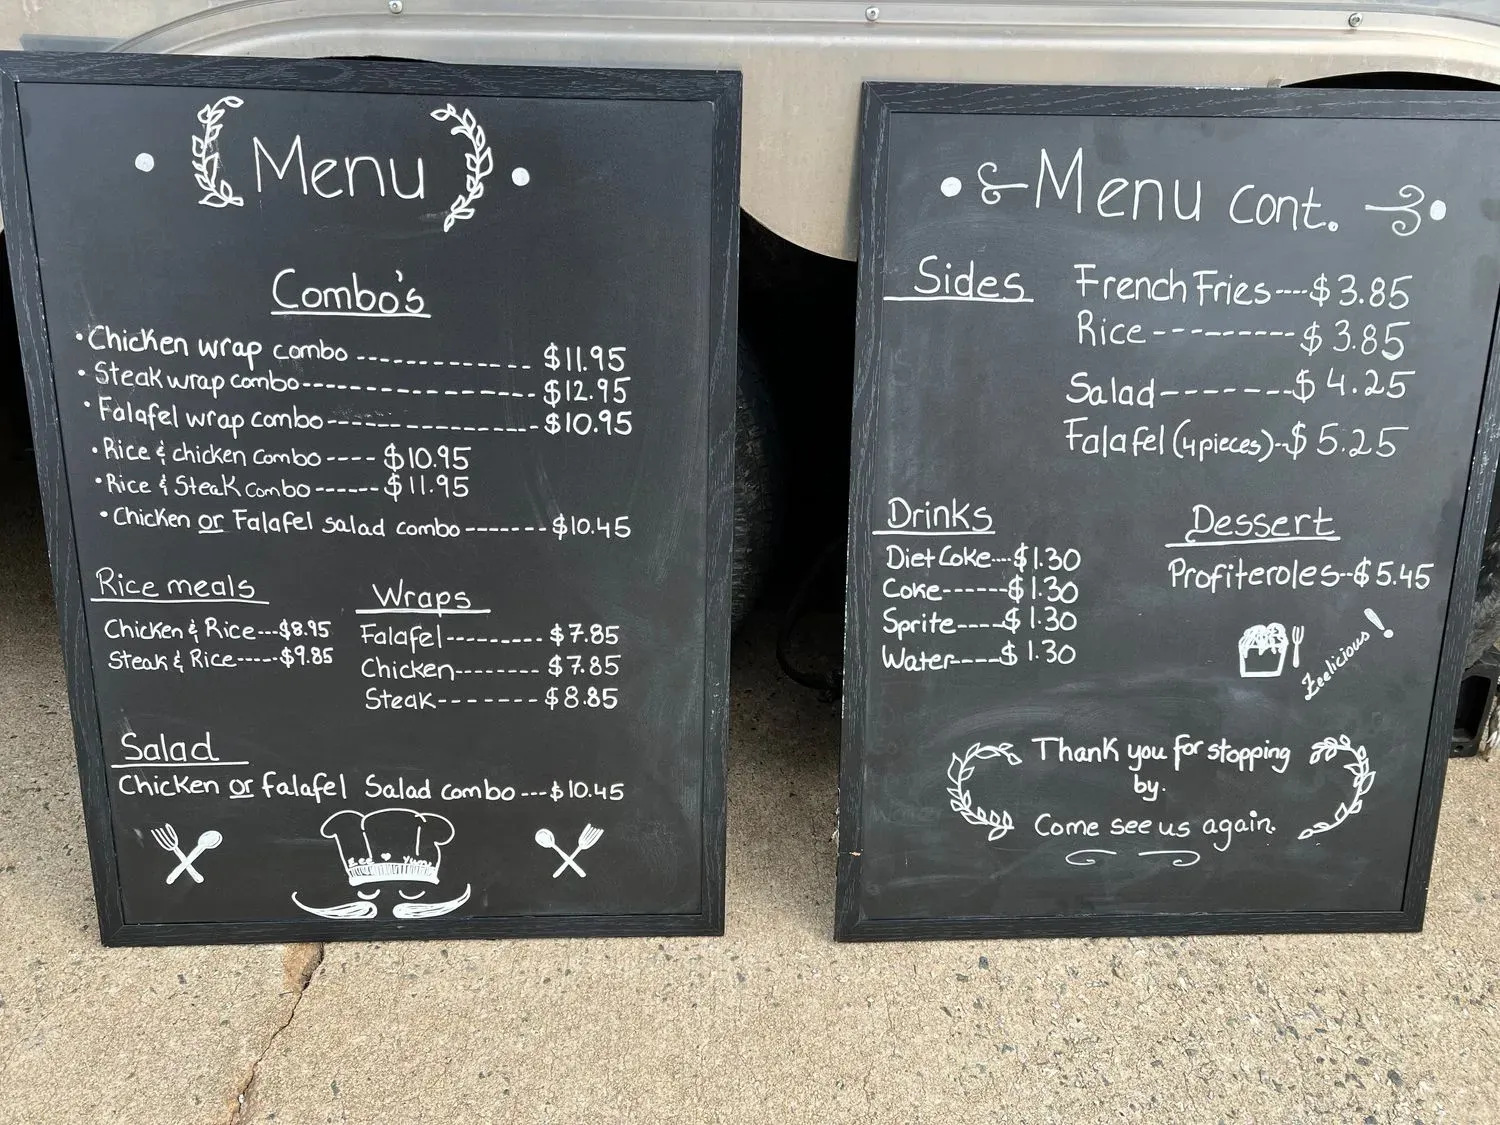 Menu
Combo's
• Chicken wrap combo ------------ $11.95
• Steak wrap combo---------------- $12.95
• Falafel wrap combo--------------- $10.95
• Rice & chicken combo ---- $10.95
• Rice & Steak combo ------ $11.95
• Chicken or Falafel salad combo ------- $10.45
Rice meals
Chicken & Rice---$8.95
Steak & Rice-----$9.85
Wraps
Falafel--------- $7.85
Chicken-------- $7.85
Steak------- $8.85
Salad
Chicken or falafel Salad combo ---$10.45
Zee ♥ Yum
Menu cont.
Sides
French Fries----$3.85
Rice ----------$3.85
Salad-------$4.25
Falafel (4 pieces)--$5.25
Drinks
Diet Coke---$1.30
Coke------$1.30
Sprite----$1.30
Water----$1.30
Dessert
Profiteroles--$5.45
Zeelicious!
Thank you for stopping
by.
Come see us again.